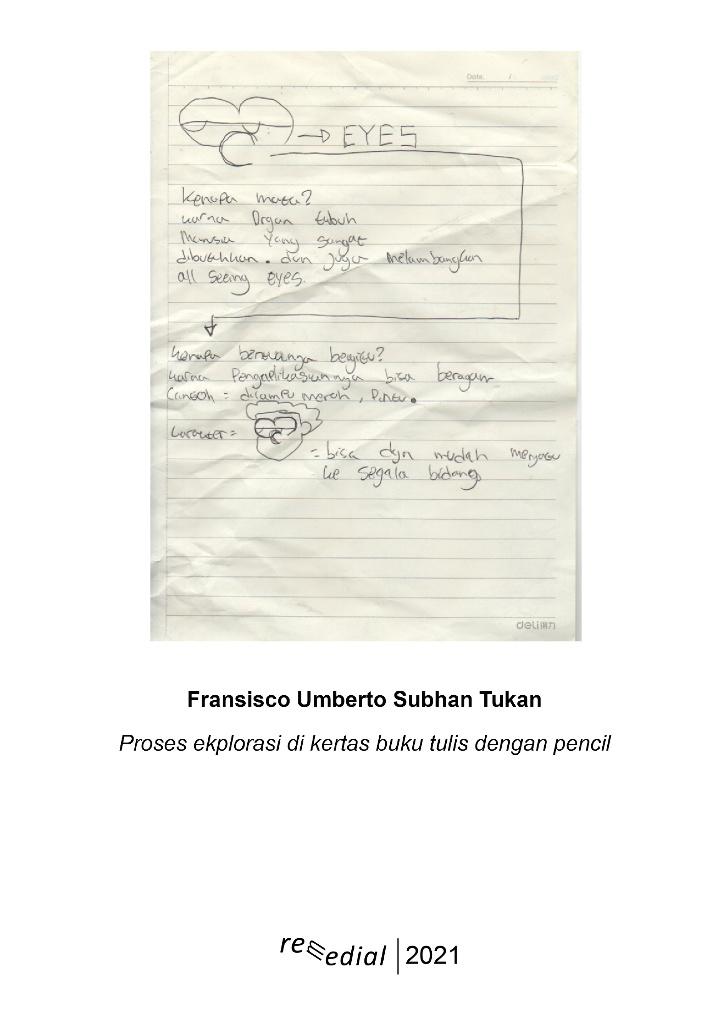 Date. /
EYES
Kenapa mata?
karna Organ tubuh
Manusia yang sangat
dibutuhkan. dan juga melambangkan
all seeing eyes.
Kenapa bentuknya begitu?
karna Pengaplikasiannya bisa beragam
Contoh = dilampu merah, Pintu.
karakter =
= bisa dgn mudah menyatu
ke segala bidang
deli得力
Fransisco Umberto Subhan Tukan
Proses ekplorasi di kertas buku tulis dengan pencil
remedial | 2021